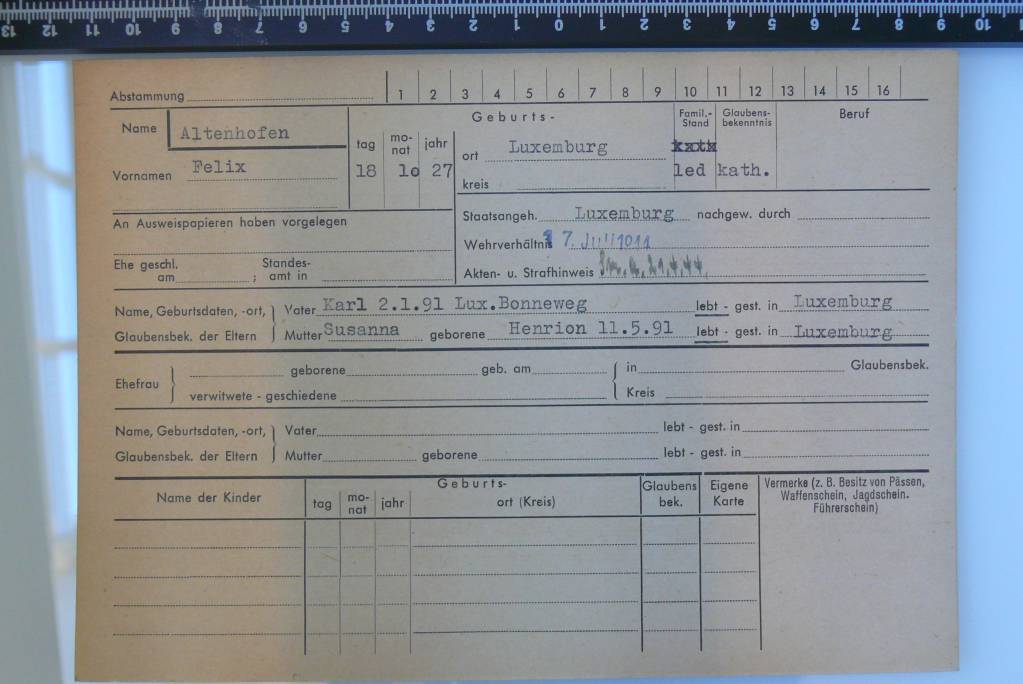 13 12 11 10 9 8 7 6 5 4 3 2 1 0 1 2 3 4 5 6 7 8 9 10
Abstammung 1 2 3 4 5 6 7 8 9 10 11 12 13 14 15 16
Name Altenhofen
Vornamen Felix
Geburts-
tag mo-nat jahr
18 lo 27
ort Luxemburg
kreis
Famil.-Stand
led
Glaubens-bekenntnis
kath.
Beruf
An Ausweispapieren haben vorgelegen
Ehe geschl. am ; Standes-amt in
Staatsangeh. Luxemburg nachgew. durch
Wehrverhältnis
Akten- u. Strafhinweis
Name, Geburtsdaten, -ort, Vater Karl 2.1.91 Lux.Bonneweg lebt - gest. in Luxemburg
Glaubensbek. der Eltern Mutter Susanna geborene Henrion 11.5.91 lebt - gest. in Luxemburg
Ehefrau geborene geb. am in Glaubensbek.
verwitwete - geschiedene Kreis
Name, Geburtsdaten, -ort, Vater lebt - gest. in
Glaubensbek. der Eltern Mutter geborene lebt - gest. in
Name der Kinder
Geburts-
tag mo-nat jahr ort (Kreis)
Glaubens bek.
Eigene Karte
Vermerke (z. B. Besitz von Pässen,
Waffenschein, Jagdschein.
Führerschein)